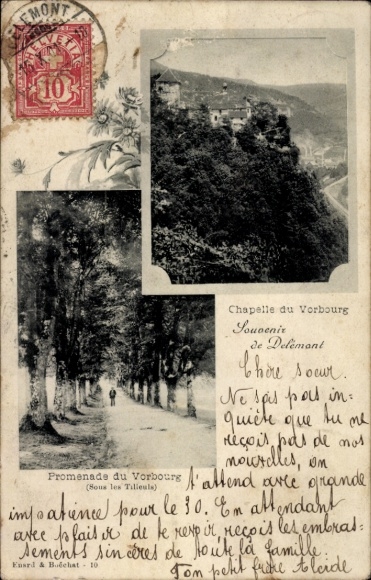 DELÉMONT
HELVETIA
10
Chapelle du Vorbourg
Souvenir
de Delémont
Chère soeur.
Ne sois pas in-
quiète que tu ne
reçois pas de nos
nouvelles, on
Promenade du Vorbourg
(Sous les Tilleuls)
t'attend avec grande
impatience pour le 30. En attendant
avec plaisir de te revoir, reçois les embras-
sements sincères de toute la famille.
Ton petit frère
Enard & Boéchat - 10